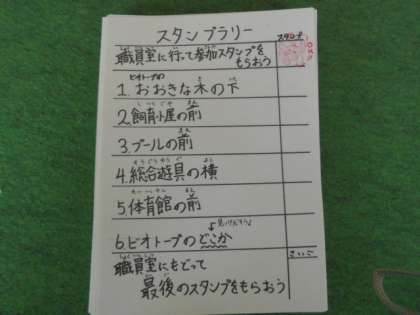 スタンプラリー
スタンプ
職員室に行って参加スタンプを
もらおう
ビオトープの
1.おおきな木の下
2.飼育小屋の前
3.プールの前
4.総合遊具の横
5.体育館の前
6.ビオトープのどこか
さいご
職員室にもどって
最後のスタンプをもらおう